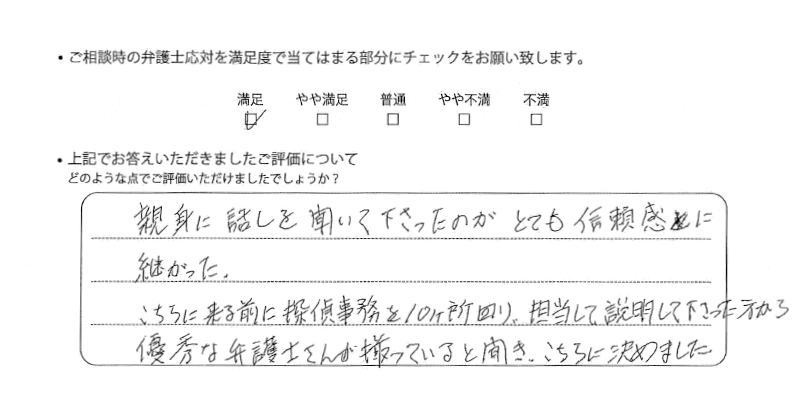 ・ご相談時の弁護士応対を満足度で当てはまる部分にチェックをお願い致します。
満足 やや満足 普通 やや不満 不満
・上記でお答えいただきましたご評価について
どのような点でご評価いただけましたでしょうか？
親身に話しを聞いて下さったのがとても信頼感に
継がった。
こちらに来る前に探偵事務を10ヶ所回り、担当して説明して下さった方から
優秀な弁護士さんが揃っていると聞き、こちらに決めました